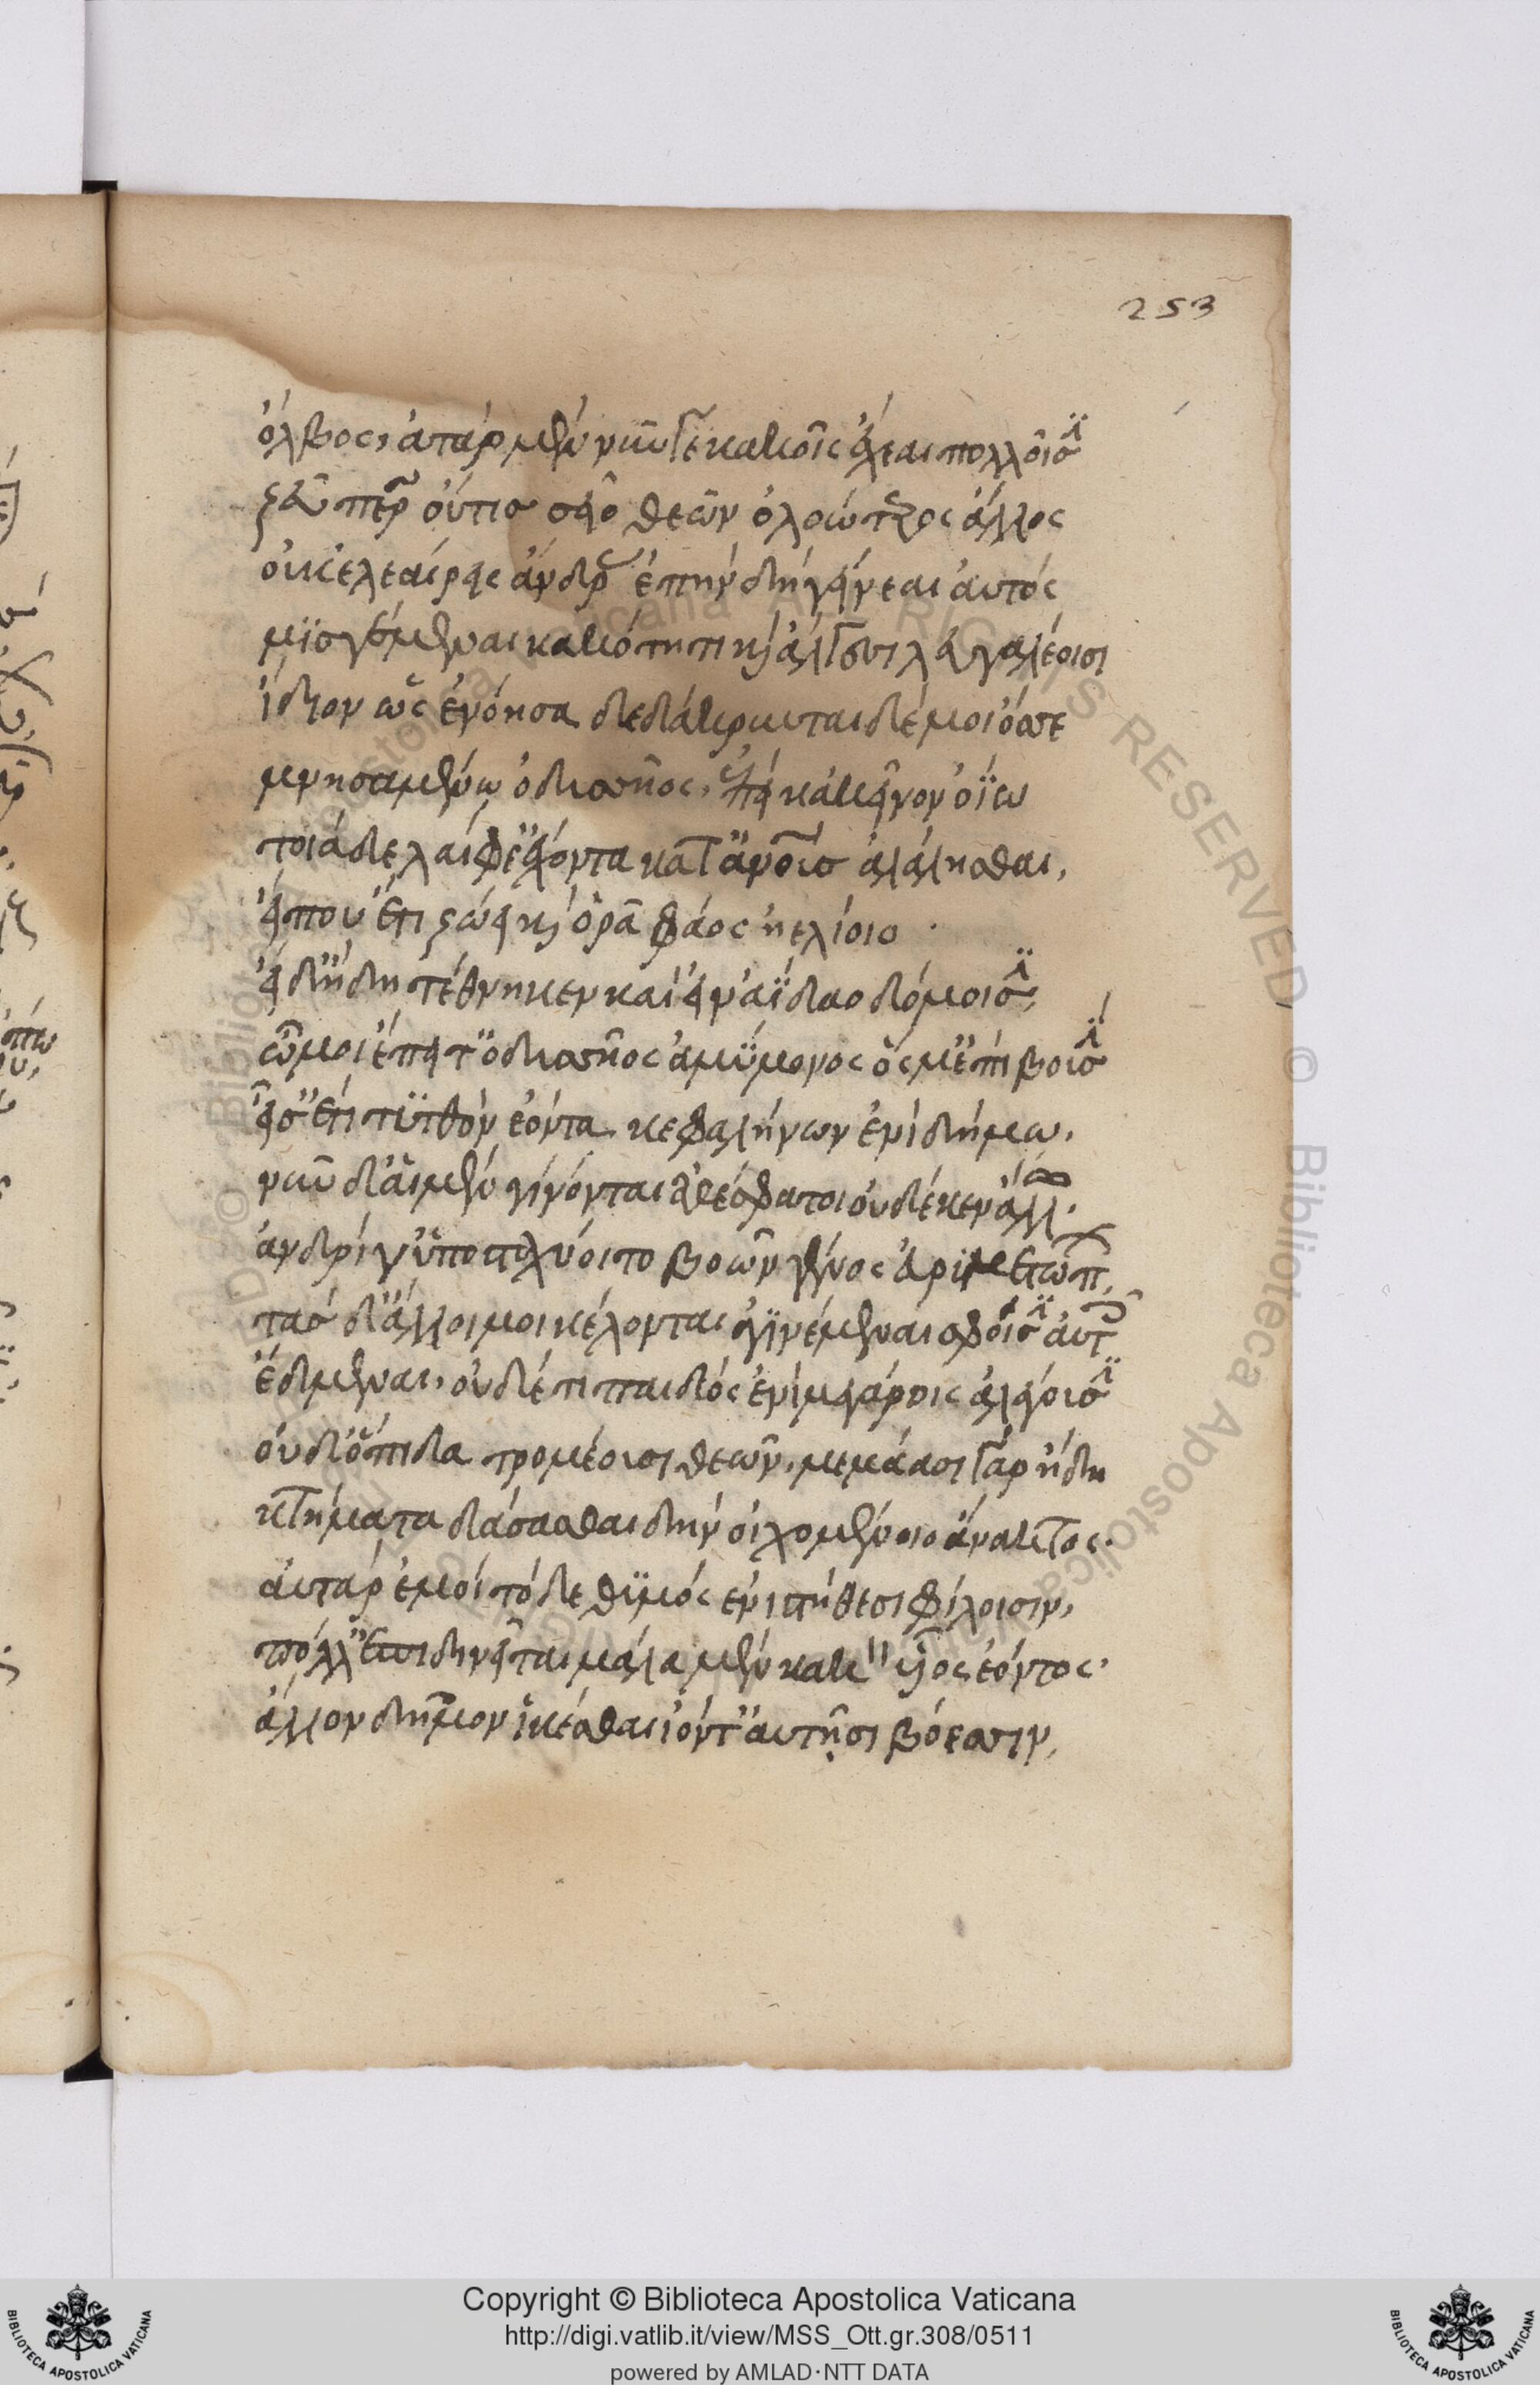 253
ὄλβος, ἀτὰρ μὲν νῦν γε κακοῖς ἔχεαι πολλοῖσι
ζεῦ πὲρ οὔτισ σεῖο θεῶν ὀλοώτερος ἄλλος
οὐκ ἐλεαίρεις ἄνδρας ἐπὴν δὴ γείνεαι αὐτός
μϊσγέμεναι κακότητι καὶ ἄλγεσι λευγαλέοισι
ἴδιον ὡς ἐνόησα δεδάκρυνται δέ μοι ὄσσε
μνησαμένω ὀδυσσῆος, ἐπεὶ κἀκεῖνον ὀΐω
τοιάδε λαίφε' ἔχοντα κατ' ἀνθρώπουσ ἀλάλησθαι,
εἴ που ἔτι ζώει καὶ ὁρᾶ φάος ἠελίοιο.
εἰ δ' ἤδη τέθνηκεν καὶ εἰν ἀΐδαο δόμοισι,
ὤμοι ἔπειτ' ὀδυσσῆος ἀμύμονος ὅς μ' ἐπὶ βουσὶ
εἷσ' ἔτι τϋτθὸν ἐόντα κεφαλήνων ἐνὶ δήμω.
νῦν δ' αἱ μὲν γίνονται ἀθέσφατοι οὐδέ κεν ἄλλως
ἀνδρί γ' ὑποσταχύοιτο βοῶν γένος εὐρυμετώπων,
τὰσ δ' ἄλλοι με κέλονται ἀγινέμεναι σφισιν αὐτοῖς
ἔδμεναι, οὐδέ τι παιδός ἐνὶ μεγάροις ἀλέγουσι
οὐδ' ὄπιδα τρομέουσι θεῶν, μεμάασι γὰρ ἤδη
κτήματα δάσασθαι δὴν οἰχομένοιο ἄνακτος.
αὐτὰρ ἐμοὶ τόδε θϋμός ἐνι στήθεσι φίλοισιν,
πόλλ' ἐπιδινεῖται μάλα μὲν κακ" υἷος ἐόντος.
ἄλλον δῆμον ἱκέσθαι ἰόντ' αὐτῇσι βόεσσιν,
Copyright © Biblioteca Apostolica Vaticana
http://digi.vatlib.it/view/MSS_Ott.gr.308/0511
powered by AMLAD·NTT DATA